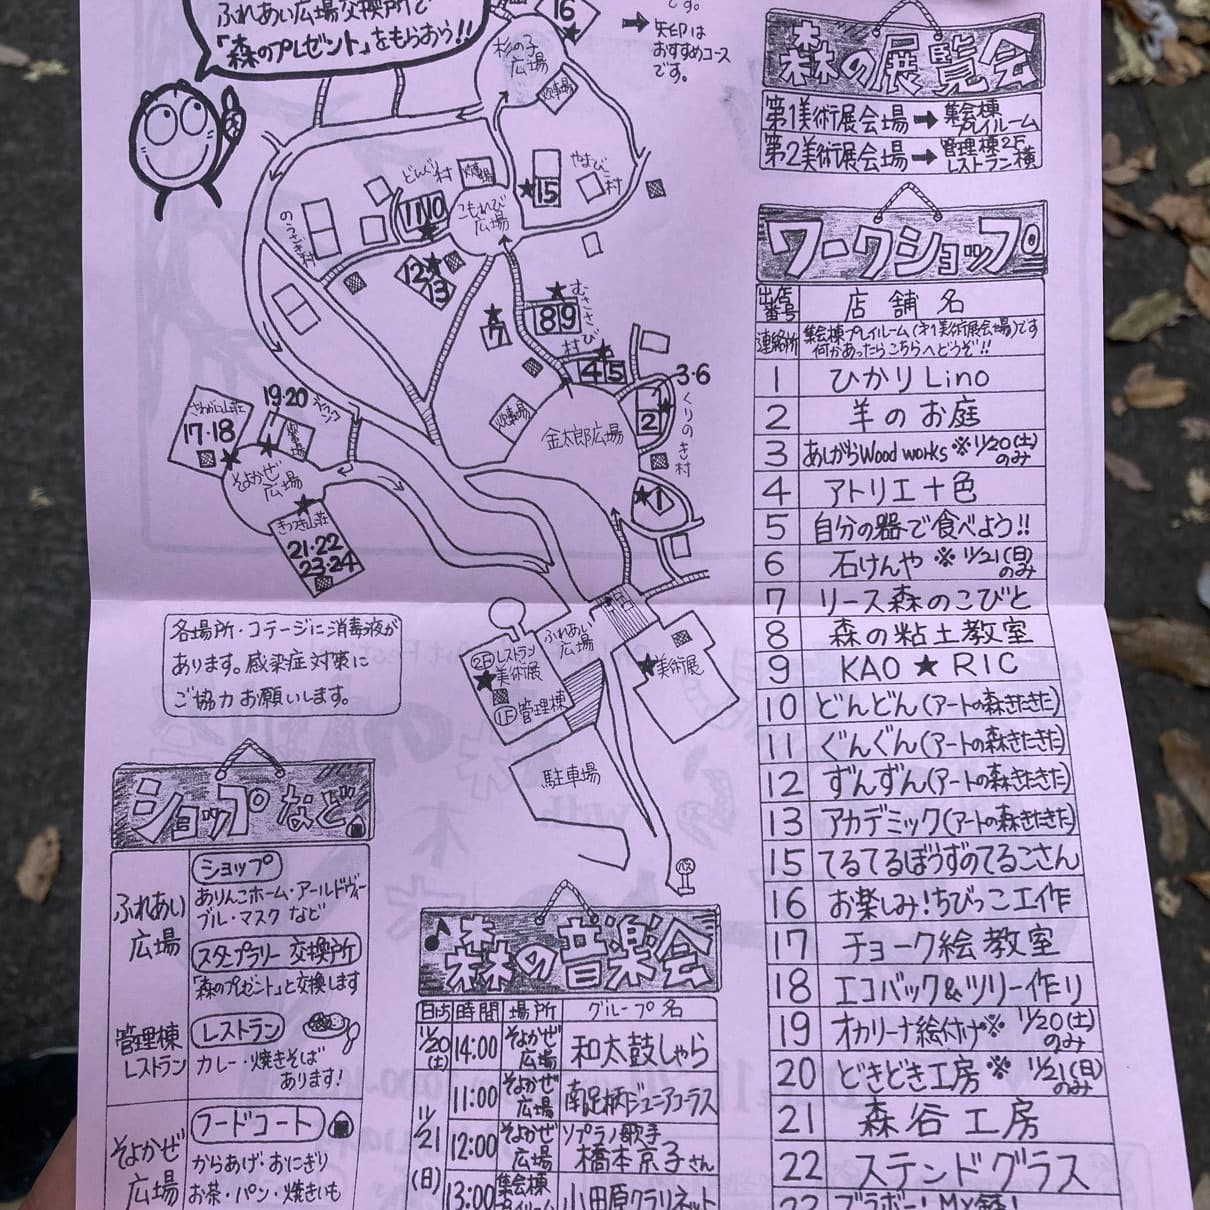 ふれあい広場交換所で
「森のプレゼント」をもらおう!!
です。
➡矢印は
おすすめコース
です。
16
杉の子
広場
炊事場
どんぐり村
炊事場
やまびこ村
15
11 10
こもれび
広場
のうさぎ村
12
13
7
むささび村
8 9
4 5
3・6
2
くりのき村
炊事場
金太郎広場
1
さわがに山荘
17・18
19・20
炊事場
そよかぜ
広場
きつつき山荘
21・22
23・24
各場所・コテージに消毒液が
あります。感染症対策に
ご協力お願いします。
2F レストラン
美術展
1F 管理棟
ふれあい
広場
美術展
駐車場
バス
森の展覧会
第1美術展会場➡集会棟
プレイルーム
第2美術展会場➡管理棟2F
レストラン横
ワークショップ
出店
番号 店舗名
連絡所 集会棟プレイルーム(第1美術展会場)です
何かあったらこちらへどうぞ!!
1 ひかりLino
2 羊のお庭
3 あしがらWood works ※11/20(土)のみ
4 アトリエ十色
5 自分の器で食べよう!!
6 石けんや ※11/21(日)のみ
7 リース森のこびと
8 森の粘土教室
9 KAO★RIC
10 どんどん(アートの森きたきた)
11 ぐんぐん(アートの森きたきた)
12 ずんずん(アートの森きたきた)
13 アカデミック(アートの森きたきた)
15 てるてるぼうずのてるこさん
16 お楽しみ!ちびっこ工作
17 チョーク絵教室
18 エコバック&ツリー作り
19 オカリーナ絵付け※ 11/20(土)のみ
20 どきどき工房※ 11/21(日)のみ
21 森谷工房
22 ステンドグラス
23 ブラボー!MY箸!
ショップなど
ふれあい
広場
ショップ
ありんこホーム・アールドヴィー
ブル・マスクなど
スタンプラリー交換所
「森のプレゼント」と交換します
管理棟
レストラン
レストラン
カレー・焼きそば
あります!
そよかぜ
広場
フードコート
からあげ・おにぎり
お茶・パン・焼きいも
♪森の音楽会
日时 時間 場所 グループ名
11/20(土) 14:00 そよかぜ広場 和太鼓しゃら
11/21(日) 11:00 そよかぜ広場 南足柄ジュニアコーラス
12:00 そよかぜ広場 ソプラノ歌手
橋本京子さん
13:00 集会棟プレイルーム 小田原クラリネット